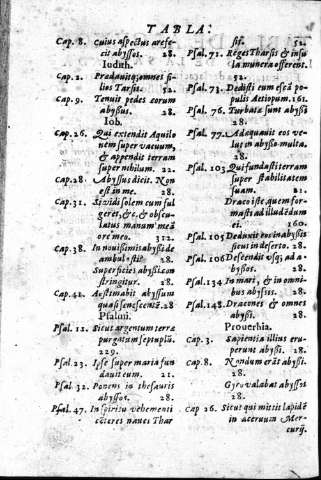 TABLA.
Cap. 8. Cuius aspectus arefe-
cit abyssos. 28.
Iudith.
Cap. 2. Prædauitq; omnes fi-
lios Tarsis. 52.
Cap. 9. Tenuit pedes eorum
abyssus. 28.
Iob.
Cap. 26. Qui extendit Aquilo
nem super vacuum,
& appendit terram
super nihilum. 22.
Cap. 28. Abyssus dicit. Non
est in me. 28.
Cap. 31. Si vidi solem cum ful
geret, &c, & oscu-
latus manum meā
ore meo. 312.
Cap. 38. In nouissimis abyssi de
ambulasti. 28.
Superficies abyssi con
stringitur. 28.
Cap. 41. Aestimabit abyssum
quasi senescentē. 28
Psalmi.
Psal. 12. Sicut argentum terræ
purgatum septuplū.
229.
Psal. 23. Ipse super maria fun
dauit eum. 21.
Psal. 32. Ponens in thesauris
abyssos. 28.
Psal. 47. In spiritu vehementi
cōteres naues Thar
sis. 52.
Psal. 71. Reges Tharsis & insu
la munera offerent.
52.
Psal. 73. Dedisti eum escā po
pulis Aetiopum. 161.
Psal. 76. Turbatæ sunt abyssi
28.
Psal. 77. Adaquauit eos vel-
ut in abysso multa.
28.
Psal. 103 Qui fundasti terram
super stabilitatem
suam. 21.
Draco iste quem for-
masti ad illudēdum
ei. 160.
Psal. 105 Deduxit eos in abyssis
sicut in deserto. 28.
Psal. 106 Descendūt vsq; ad a-
byssos. 28.
Psal. 134 In mari, & in omni-
bus abyssis. 28.
Psal. 148. Dracones & omnes
abyssi. 28.
Prouerbia.
Cap. 3. Sapientia illius eru-
perunt abyssi. 28.
Cap. 8. Nondum erāt abyssi.
28.
Gyro valabat abyssos
28.
Cap 26. Sicut qui mittis lapidē
in aceruum Mer-
curij.